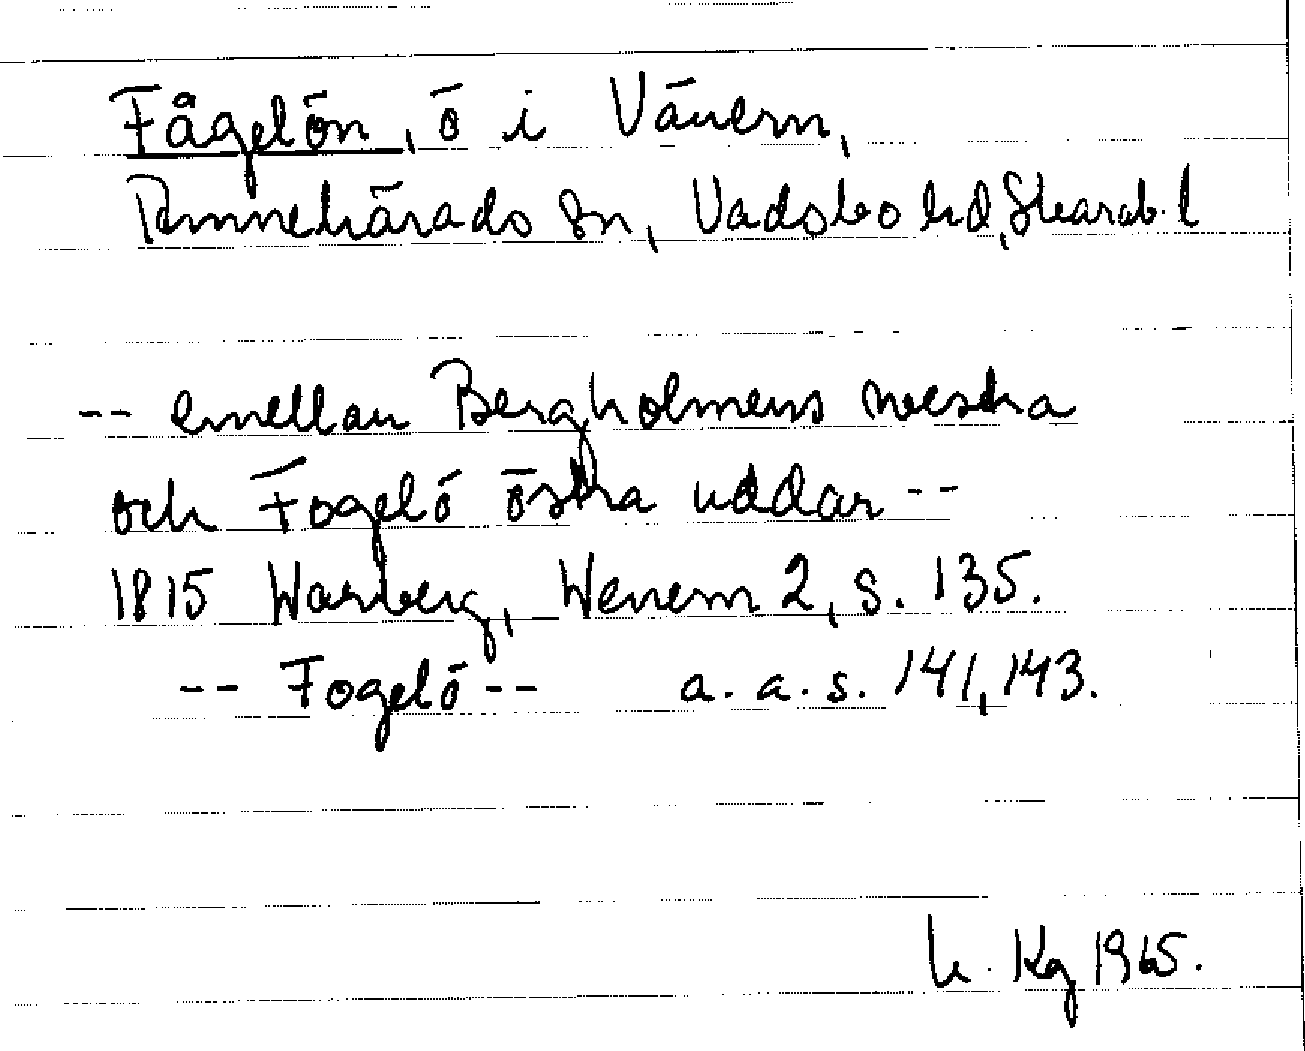 Fågelön, ö i Vänern,
Bromnehärads sn, Vadsbo hd, Skarab. l
-- emellan Bergholmens westra
och Fogelö östra uddar --
1815 Warberg, Wenern 2, s. 135.
-- Fogelö -- a. a. s. 141, 143.
h. Kg 1965.